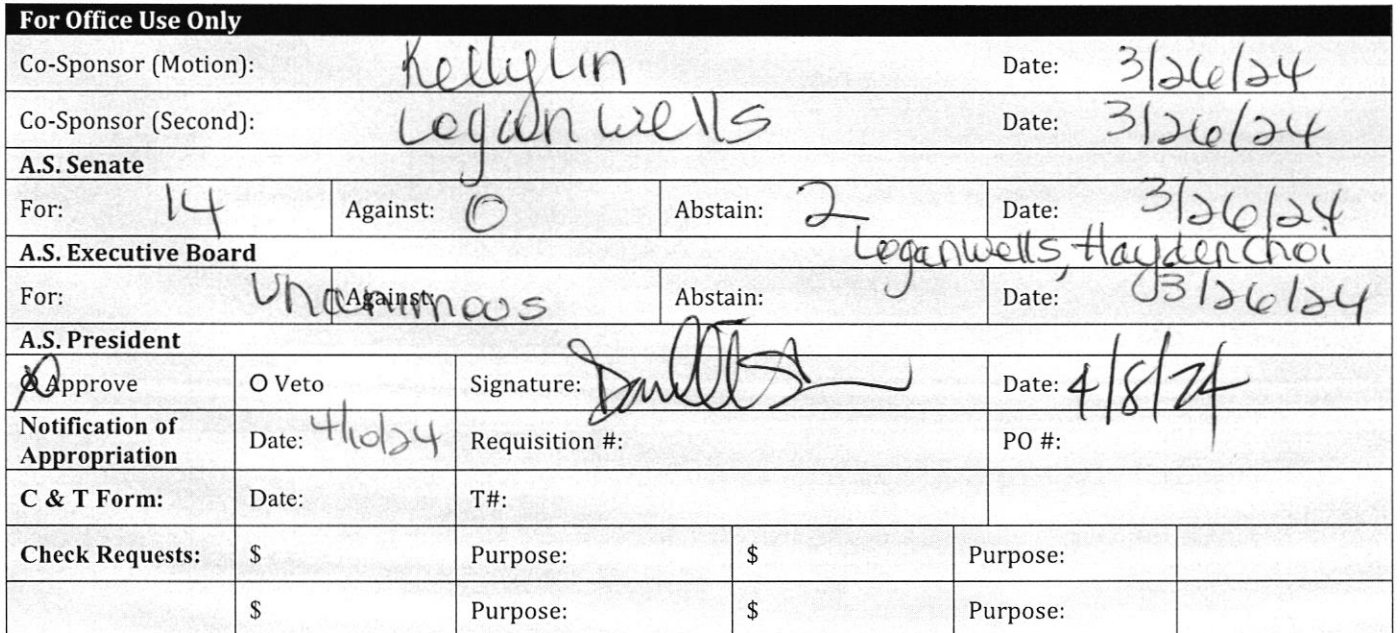 For Office Use Only
Co-Sponsor (Motion): Kelly Lin Date: 3/26/24
Co-Sponsor (Second): Logan Wells Date: 3/26/24
A.S. Senate
For: 14 Against: 0 Abstain: 2 Date: 3/26/24
Logan Wells, Hayden Choi
A.S. Executive Board
For: Unanimous Against: Abstain: Date: 03/26/24
A.S. President
O Approve O Veto Signature: Date: 4/8/24
Notification of Appropriation Date: 4/10/24 Requisition #: PO #:
C & T Form: Date: T#:
Check Requests: $ Purpose: $ Purpose:
$ Purpose: $ Purpose: